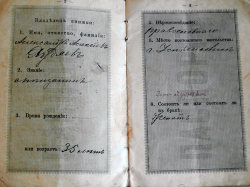 Владѣлецъ книжки:
1. Имя, отчество, фамилія:
Александръ Алексѣевъ
2. Званіе:
мѣщанинъ
3. Время рожденія:
или возрастъ: 35 лѣтъ
4. Вѣроисповѣданіе:
Православнаго
5. Мѣсто постояннаго жительства:
г.
6. Состоитъ ли или состоялъ ли
въ бракѣ:
Женатъ